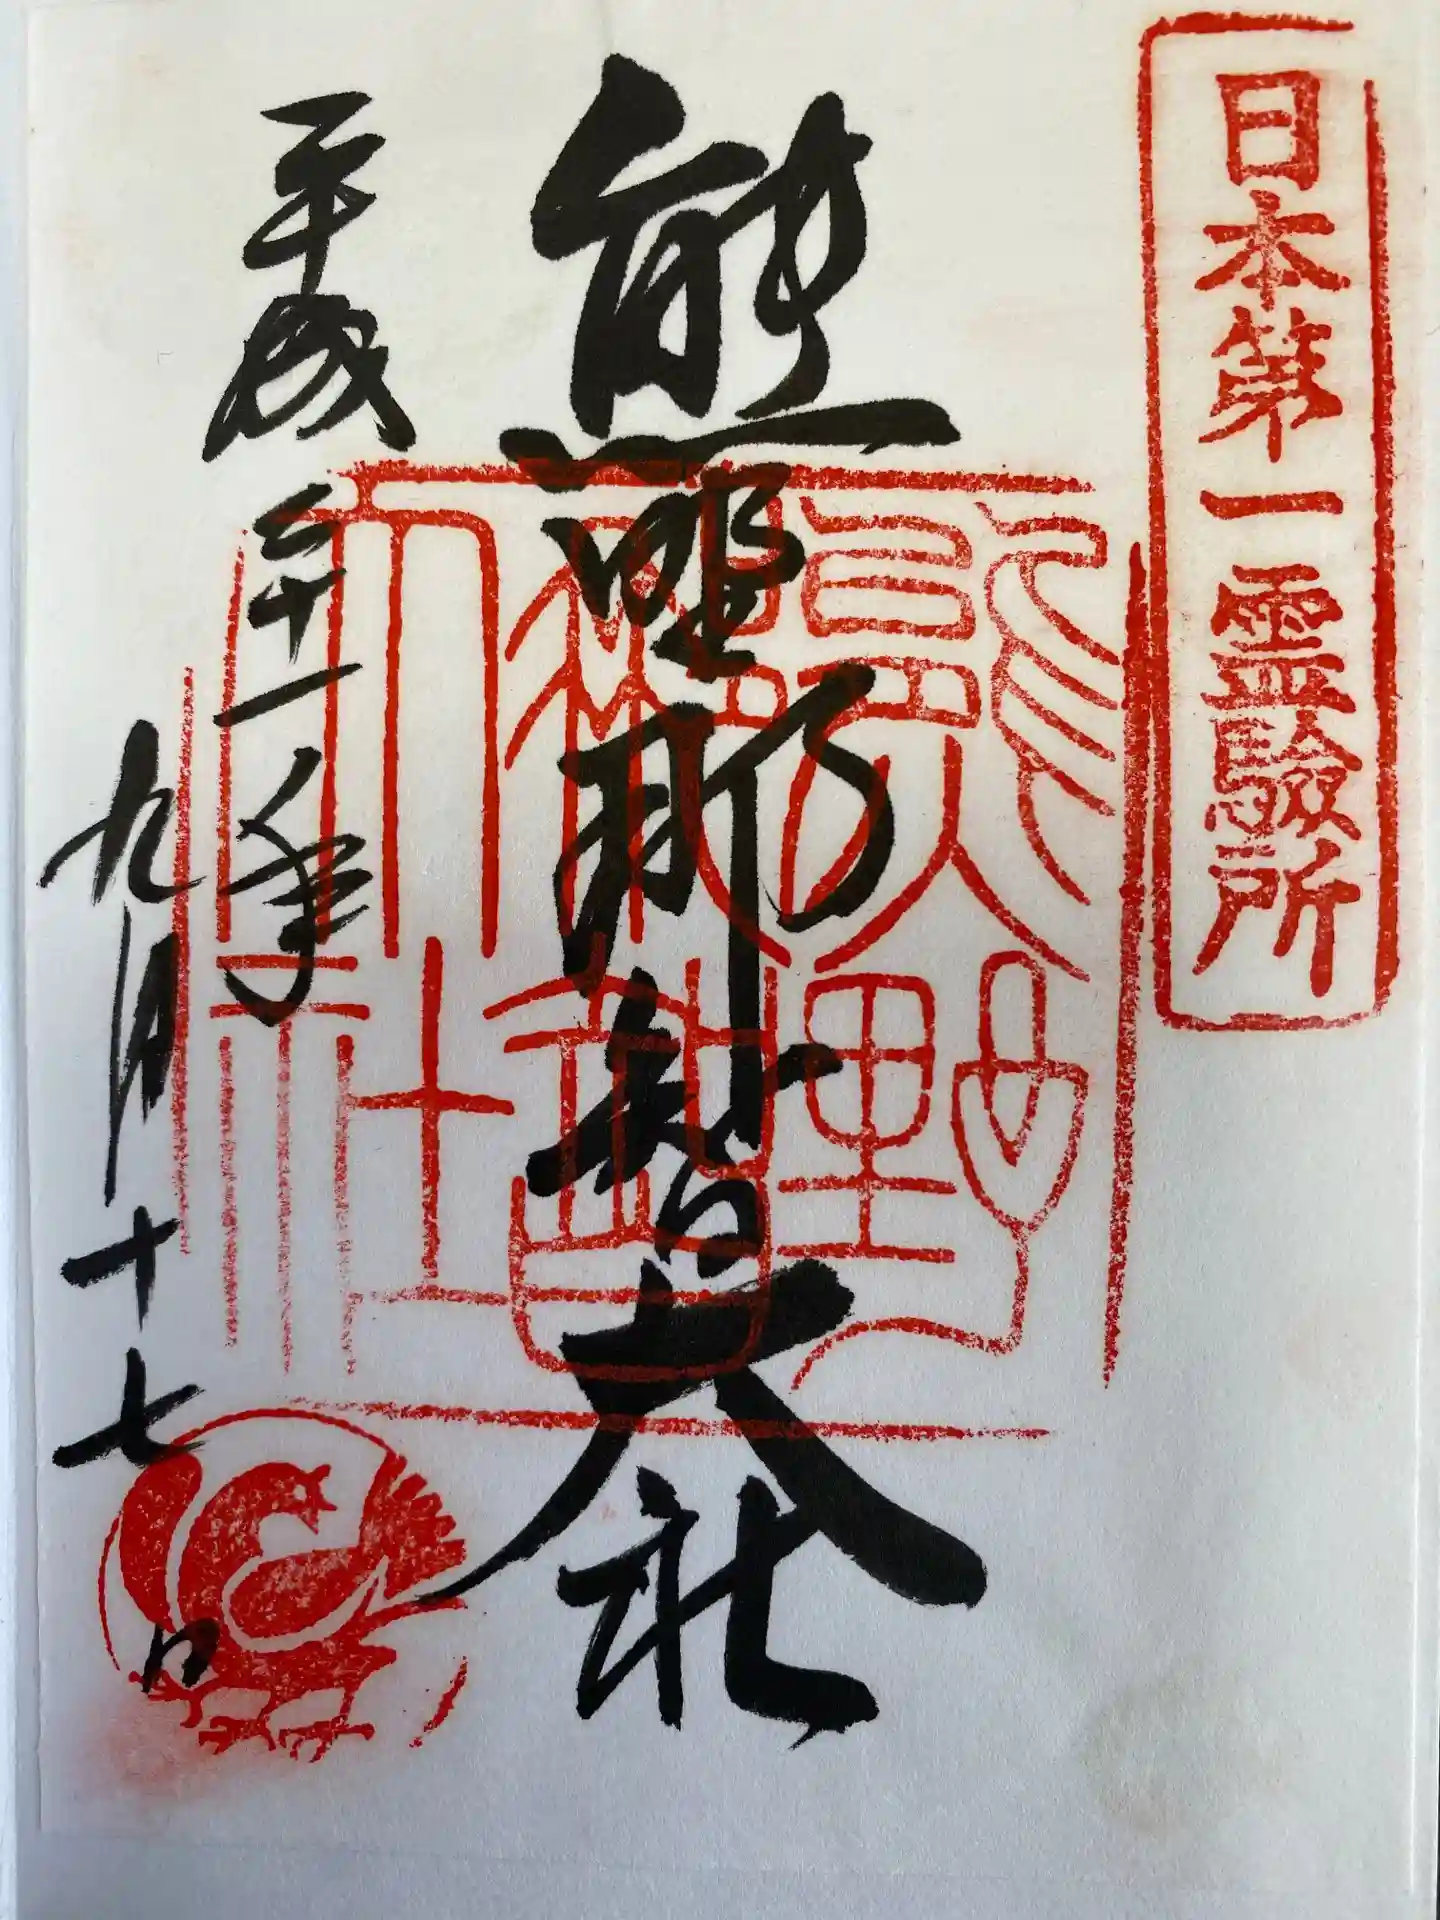 日本第一霊験所
熊野那智大社
熊野那智大社
平成二十一年
九月十七日